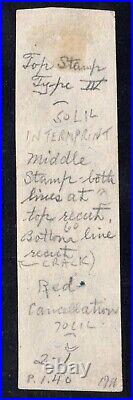 Top Stamp
Type IV
50L1L
INTERMPRINT
Middle
Stamp=both
lines at
top recut,
60
Bottom line
recut
(CRACK)
Red
Cancellation
70L1L
P. 1.40 1911